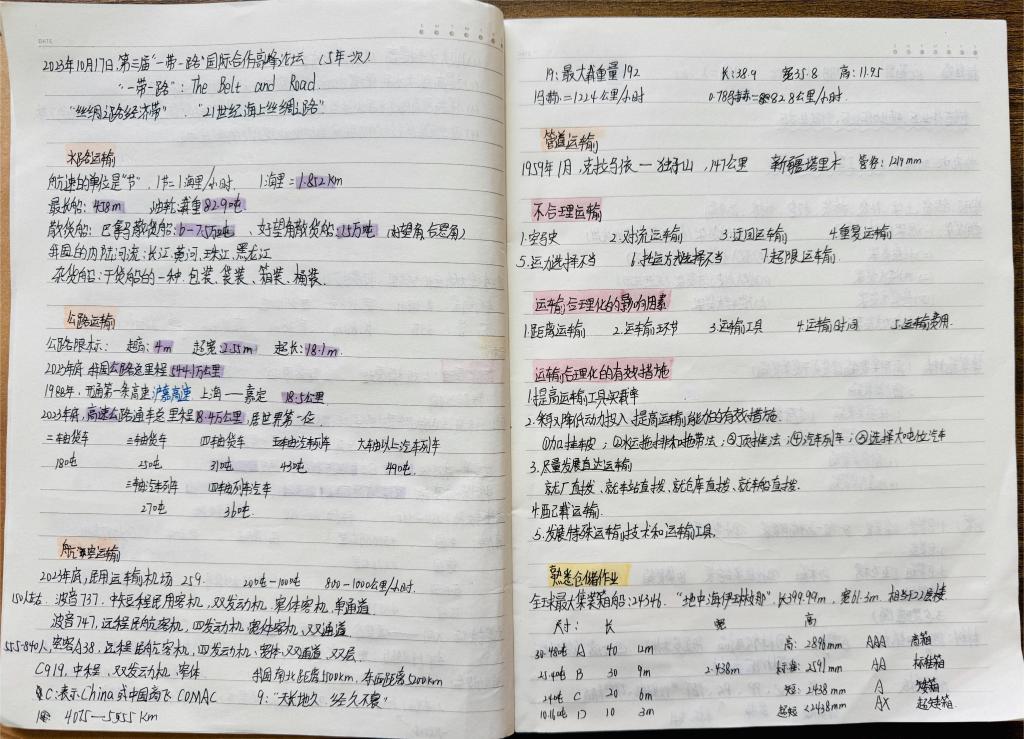 2023年10月17日,第三届"一带一路"国际合作高峰论坛 (5年一次)
"一带一路": The Belt and Road.
"丝绸之路经济带" "21世纪海上丝绸之路"
水路运输
航速的单位是"节", 1节=1海里/小时. 1海里=1.852Km
最长船: 458m 油轮:载重82.9吨
散货船: 巴拿马散货船: 6-7.5万吨 、好望角散货船: 15万吨
我国的内陆河流:长江.黄河.珠江.黑龙江
杂货船:干货船的一种.包装、袋装、箱装、桶装、
公路运输
公路限标: 超高:4m 超宽:2.55m 超长:18.1m.
2023年底我国公路总里程544.1万公里
1988年,开通第一条高速沪嘉高速 上海——嘉定 18.5公里
2023年底,高速公路通车总里程18.4万公里,居世界第一位
二轴货车 三轴货车 四轴货车 五轴汽车列车 六轴以上汽车列车
180吨 250吨 310吨 430吨 490吨
三轴汽车列车 四轴列车汽车
270吨 360吨.
航空运输
2023年底,民用运输机场 259. 200吨-1000吨 800-1000公里/小时.
150人左右 波音737.中短程民用客机,双发动机 窄体客机,单通道
波音747.远程民航客机,四发动机 宽体客机,双通道
555-840人,空客A38.远程民航客机,四发动机.宽体.双通道、双层.
C919,中程、双发动机、窄体 我国南北距离5500km,东西距离5200km
C:表示China或中国商飞COMAC 9:"天长地久.经久不衰"
4075—5555 Km
19:最大载重量192 长:38.9 宽35.8 高:11.95
1马赫=1224公里/小时 0.78马赫=828公里/小时.
管道运输
1959年1月,克拉玛依—独子山,147公里 新疆塔里木 管径:1219mm
不合理运输
1.空驾驶 2.对流运输 3.迂回运输 4.重复运输
5.运力选择不当 6.托运方式选择不当 7.超限运输.
运输合理化的影响因素
1.距离运输 2.运输环节 3.运输工具 4.运输时间 5.运输费用.
运输合理化的有效措施
1.提高运输工具实载率
2.采取降低动力投入提高运输能力的有效措施.
①加挂车皮;②水运拖排和拖带法;③顶推法;④汽车列车;⑤选择大吨位汽车
3.尽量发展直达运输
就厂直拨、就车站直拨、就仓库直拨、就车船直拨.
4.配载运输.
5.发展特殊运输技术和运输工具.
熟悉仓储作业
全球最大集装箱船:24346."地中海伊琳娜"长399.99m,宽61.3m.相当于22层楼
尺寸: 长 宽 高
30.48吨 A 40 12m 高: 2896mm AAA 高箱
25.4吨 B 30 9m 2.438m 标准: 2591mm AA 标准箱
24吨 C 20 6m 矮: 2438mm A 矮箱
10.16吨 D 10 3m 超矮 <2438mm AX 超矮箱.